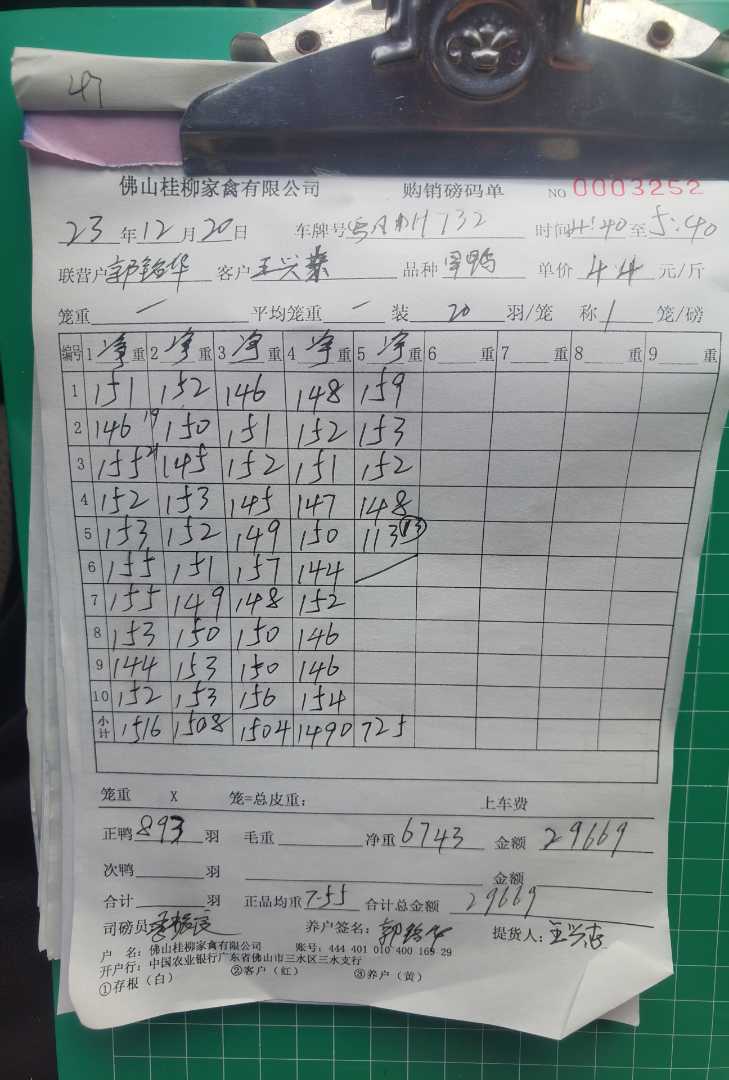 47
佛山桂柳家禽有限公司 购销磅码单 NO 0003252
23年12月20日 车牌号 H732 时间4:40至5:40
联营户郭铭华 客户王兴 品种 鸭 单价4.4元/斤
笼重 一 平均笼重 一 装 20 羽/笼 称 1 笼/磅
编号 1 净重 2 净重 3 净重 4 净重 5 净重 6 重 7 重 8 重 9 重
1 151 152 146 148 159
2 146 19 150 151 152 153
3 155 21 145 152 151 152
4 152 153 145 147 148
5 153 152 149 150 113 13
6 155 151 157 144
7 155 149 148 152
8 153 150 150 146
9 144 153 150 146
10 152 153 156 154
小计 1516 1508 1504 1490 725
笼重 X 笼=总皮重: 上车费
正鸭893羽 毛重 净重6743 金额 29669
次鸭 羽 金额
合计 羽 正品均重7.55 合计总金额 29669
司磅员 养户签名:郭铭华 提货人:王兴
户 名:佛山桂柳家禽有限公司 账号:444 401 010 400 169 29
开户行:中国农业银行广东省佛山市三水区三水支行
①存根(白) ②客户(红) ③养户(黄)